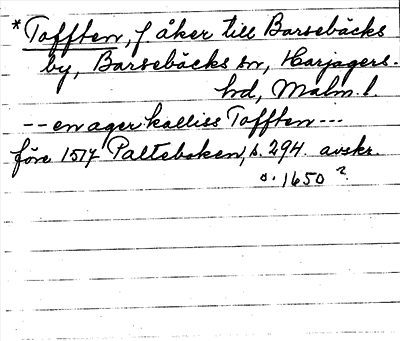 *Tofften, f åker till Barsebäcks
by, Barsebäcks sn, Harjagers.
hd, Malm. l.
-- en ager kalliss Tofften ---
före 1517 Palteboken, s. 294. avskr.
o. 1650 ?